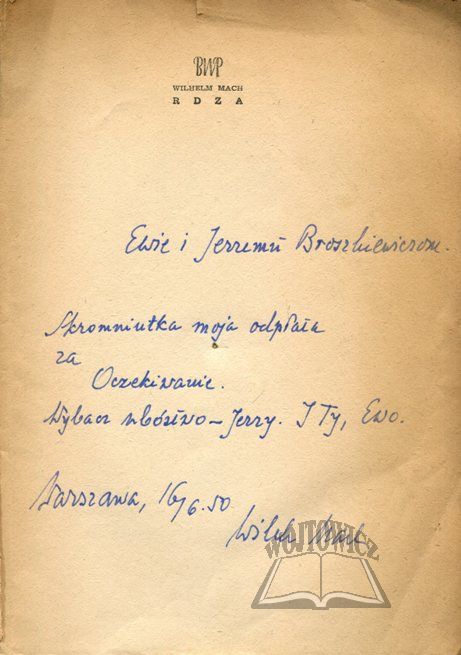 BWP
WILHELM MACH
RDZA
Ewie i Jerzemu Broszkiewiczom.
Skromniutka moja odpłata
za
Oczekiwanie.
Wybacz ubóstwo – Jerzy. I Ty, Ewo.
Warszawa, 16/6.50
Wilh Mach
WÓJTOWICZ